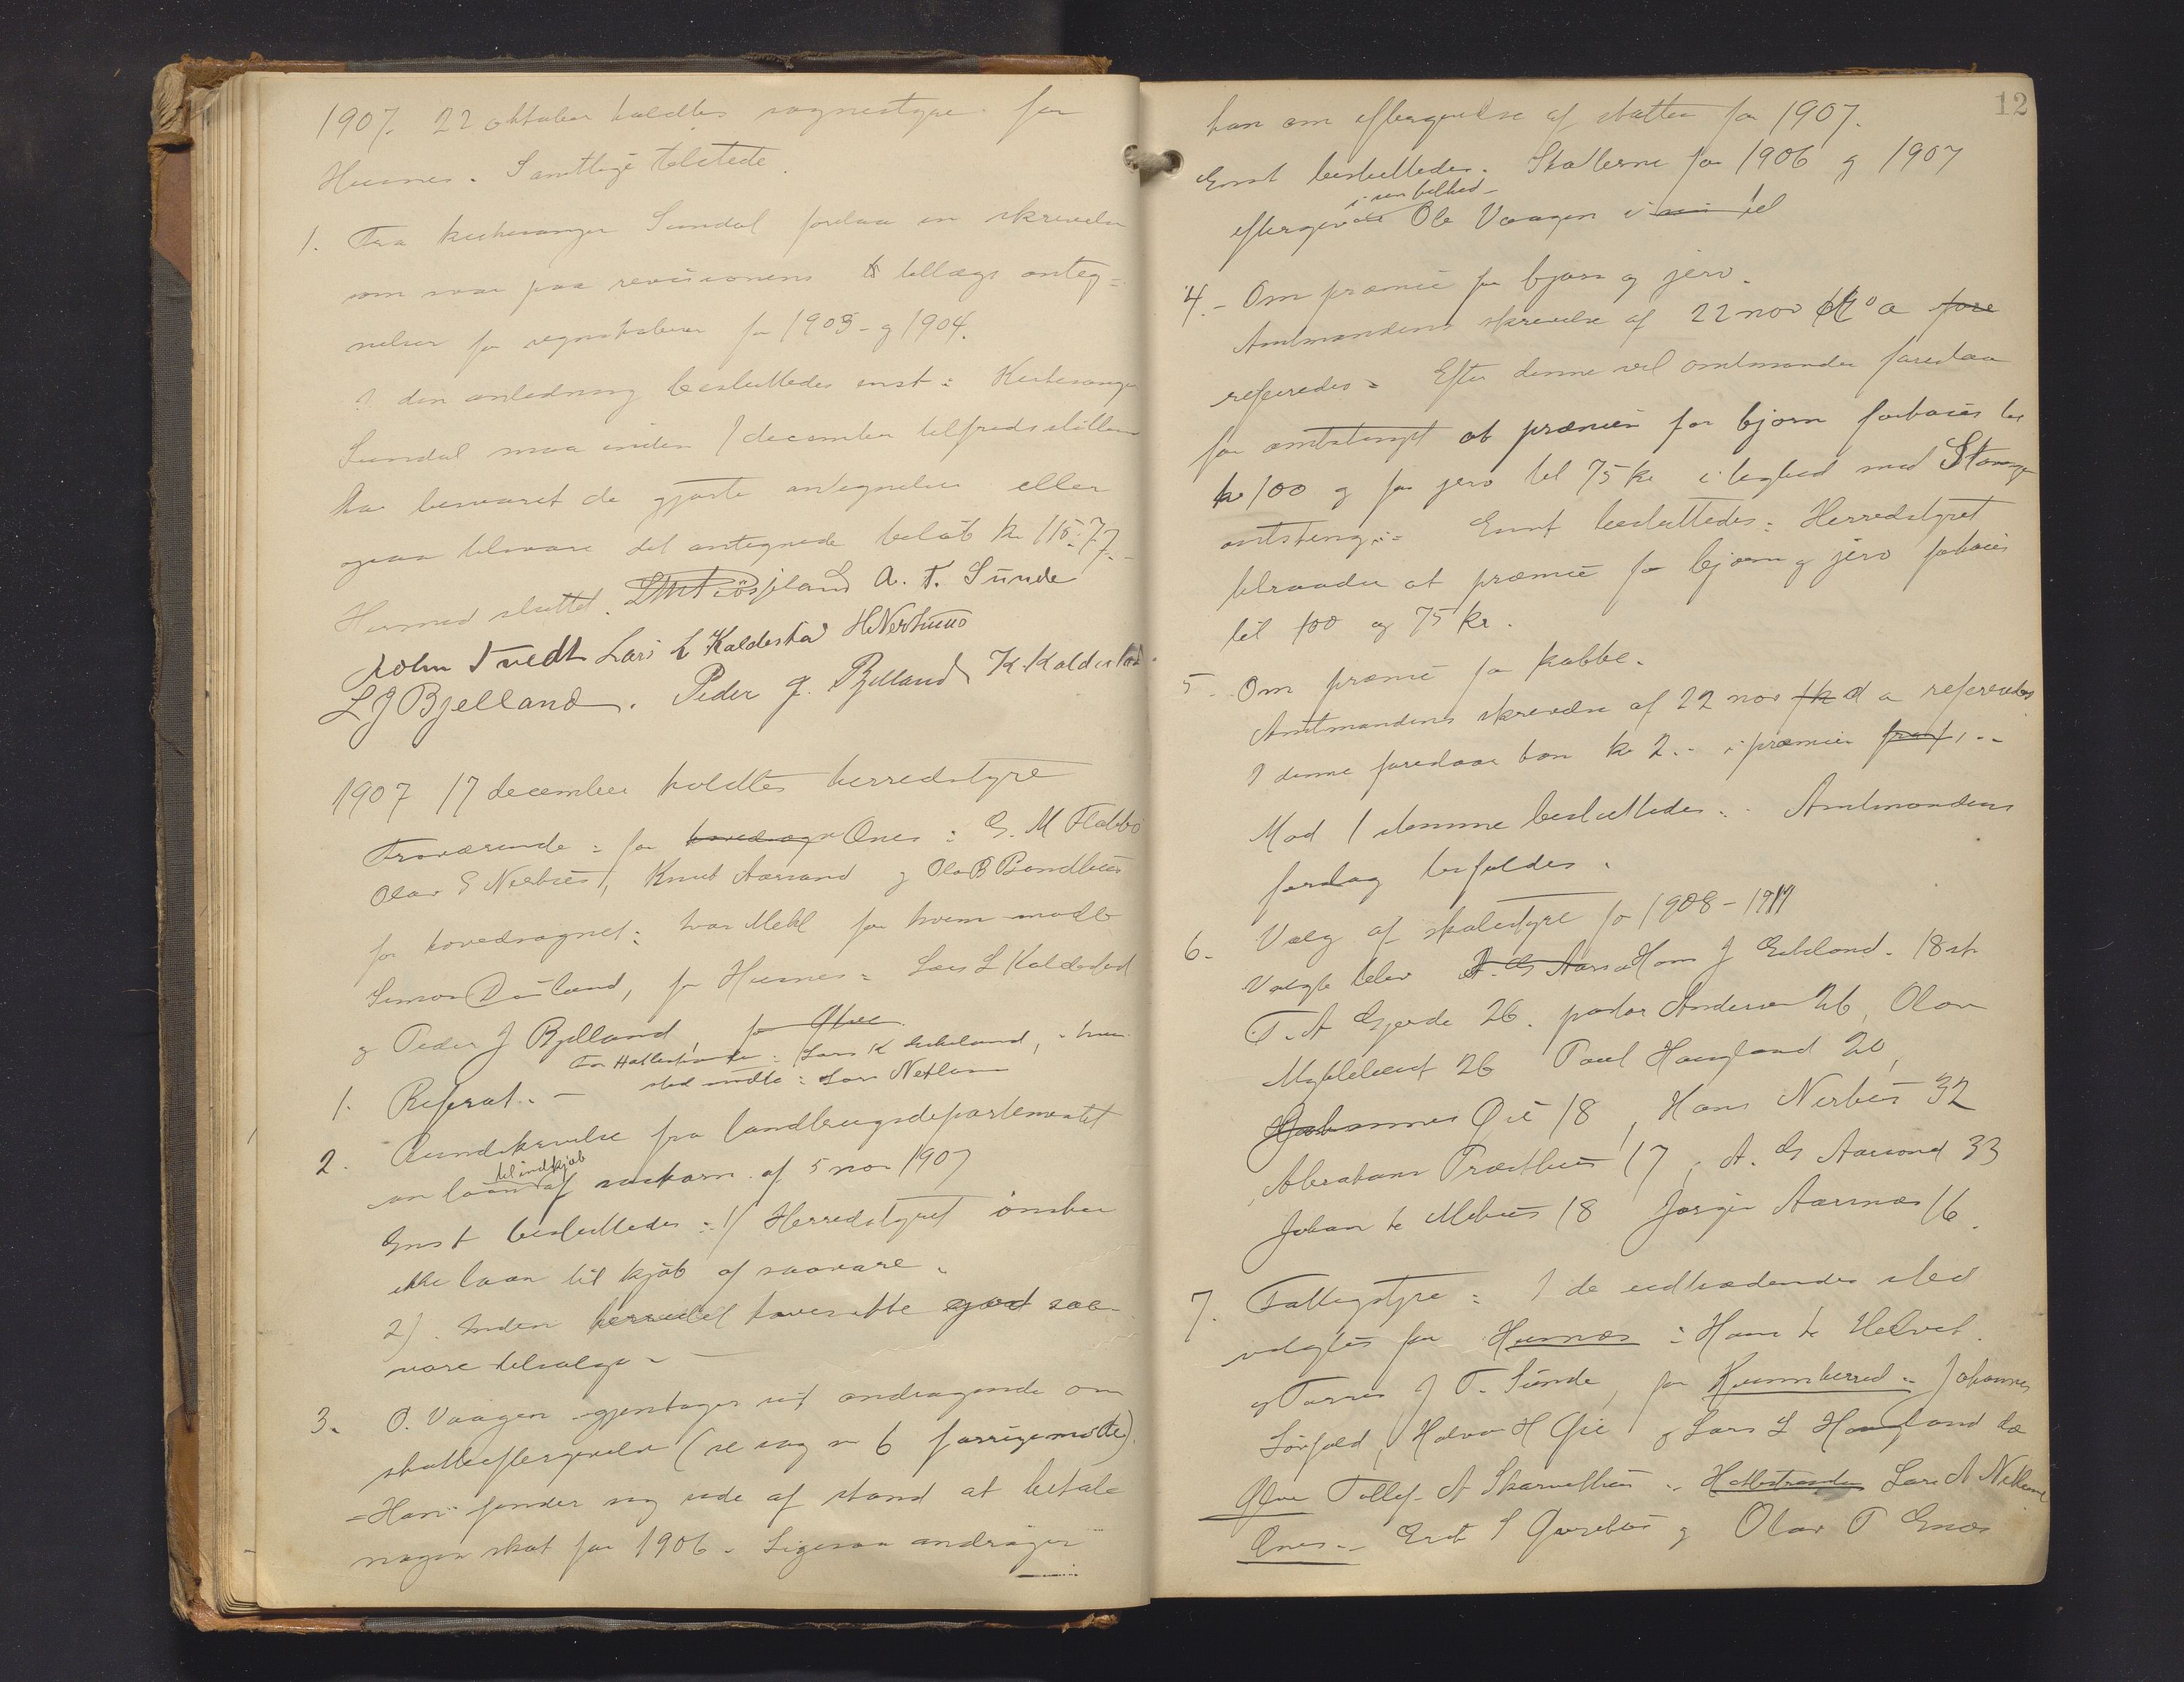 1907. 22 oktober holdtes sognestyre for
Husnes. Samtlige tilstede.
1. Fra kirkesanger Sundal forelaa en skrivelse
som svar paa revisionens tillægs anteg=
nelser for regnskaberne for 1903 og 1904.
I den anledning besluttedes enst: Kirkesanger
Sundal maa inden 1 december tilfredsstillende
ha besvaret de gjorte antegnelser eller
ogsaa tilsvare det antegnede beløb kr 115.77.-
Hermed sluttet. A. T. Sunde
John Tvedt Lars L Kaldestad H Nerhuus
L J Bjelland. Peder J. Bjelland K. Kaldestad.
1907 17 december holdtes herredstyre
Fraværende: for hovedsogn Ænes: G. M Flatebø
Olav E Nerhus, Knut Aarsand og Ola B Bondhus
for hovedsognet: Ivar Mehl for hvem mødte
Simon Døsland, for Husnes: Lars L Kaldestad
og Peder J Bjelland, for Ølve
For Hatlestranden: Lars K Eikeland, i hvis
sted mødte: Lars Netland
1. Referat. -
2. Rundskrivelse fra landbrugsdepartementet
om laan til indkjøb af saakorn af 5 nov 1907
Enst besluttedes: 1) Herredstyret ønsker
ikke laan til kjøb af saavare.
2) Inden herredet haves ikke god saa-
vare tilsalgs -
3. O. Vaagen gjentager sit andragende om
skatteeftergivelse (se sag nr 6 forrige møde).
"Han" finder sig ude af stand at betale
nogen skat for 1906. Ligesaa andrager
12
han om eftergivelse af skatten for 1907.
Enst besluttedes: Skatterne for 1906 og 1907
i sin helhed
eftergives Ole Vaagen i sin hel
4. - Om præmie for bjørn og jerv.
Amtmandens skrivelse af 22 nov d a fore
refereredes: Efter denne vil amtmanden foreslaa
for amtstinget at præmien for bjørn forhøies til
kr 100 og for jerv til 75 kr i lighed med Stavanger
amtsting: Enst besluttedes: Herredstyret
tilraader at præmie for bjørn og jerv forhøies
til 100 og 75 kr.
5. Om præmie for kobbe.
Amtmandens skrivelse af 22 nov d a refereredes
I denne foreslaar han kr 2.- i præmie
Mod 1 stemme besluttedes: Amtmandens
forslag bifaldes.
6. Valg af skolestyre for 1908-1911
Valgte blev A. G Aarsa Hans J Eikeland. 18 st
T. A Gjerde 26. pastor Andersen 26, Olav
Myklebust 26 Paul Haugland 20,
Johannes Øie 18, Hans Nerhus 32
Abraham Træthus 17, A. G Aarsand 33
Johan K Mehus 18 Jørgen Aarsnes 16.
7. Fattigstyre: I de udtrædendes sted
valgtes for Husnes: Hans K Helvet.
og Torres J T. Sunde, for Kvinnherred: Johannes
Sørfold, Halvor H Øie og Lars L Haugland
Ølve Tollef A Skarvethus - Hatlestranden Lars A Netland
Ænes - Erik S Gurebus og Olav T Enes